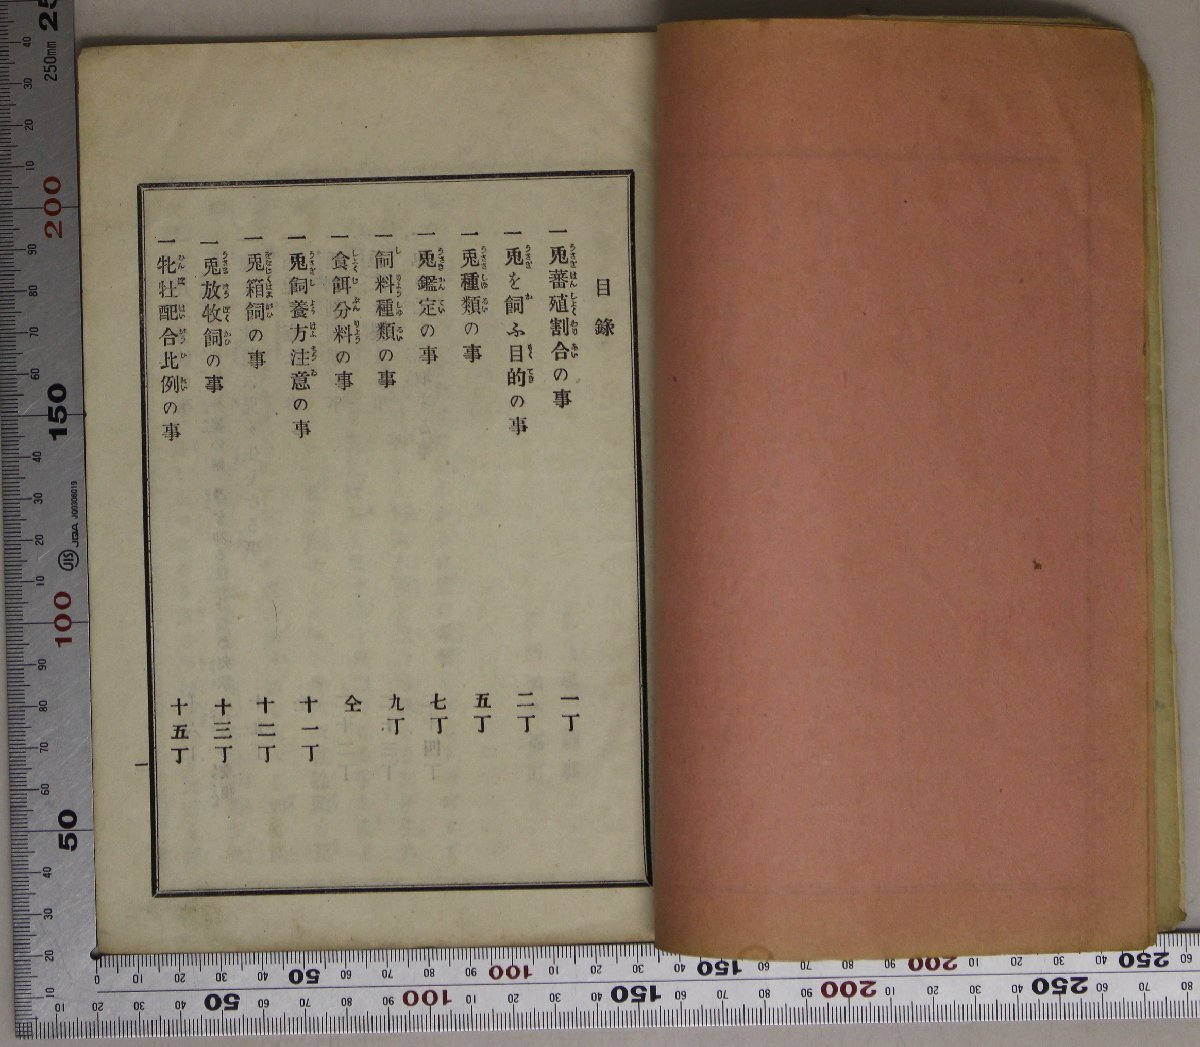 目錄
一兎蕃殖割合の事 一丁
一兎を飼ふ目的の事 二丁
一兎種類の事 五丁
一兎鑑定の事 七丁
一飼料種類の事 九丁
一食餌分料の事 仝
一兎飼養方注意の事 十一丁
一兎箱飼の事 十二丁
一兎放牧飼の事 十三丁
一牝牡配合比例の事 十五丁
一